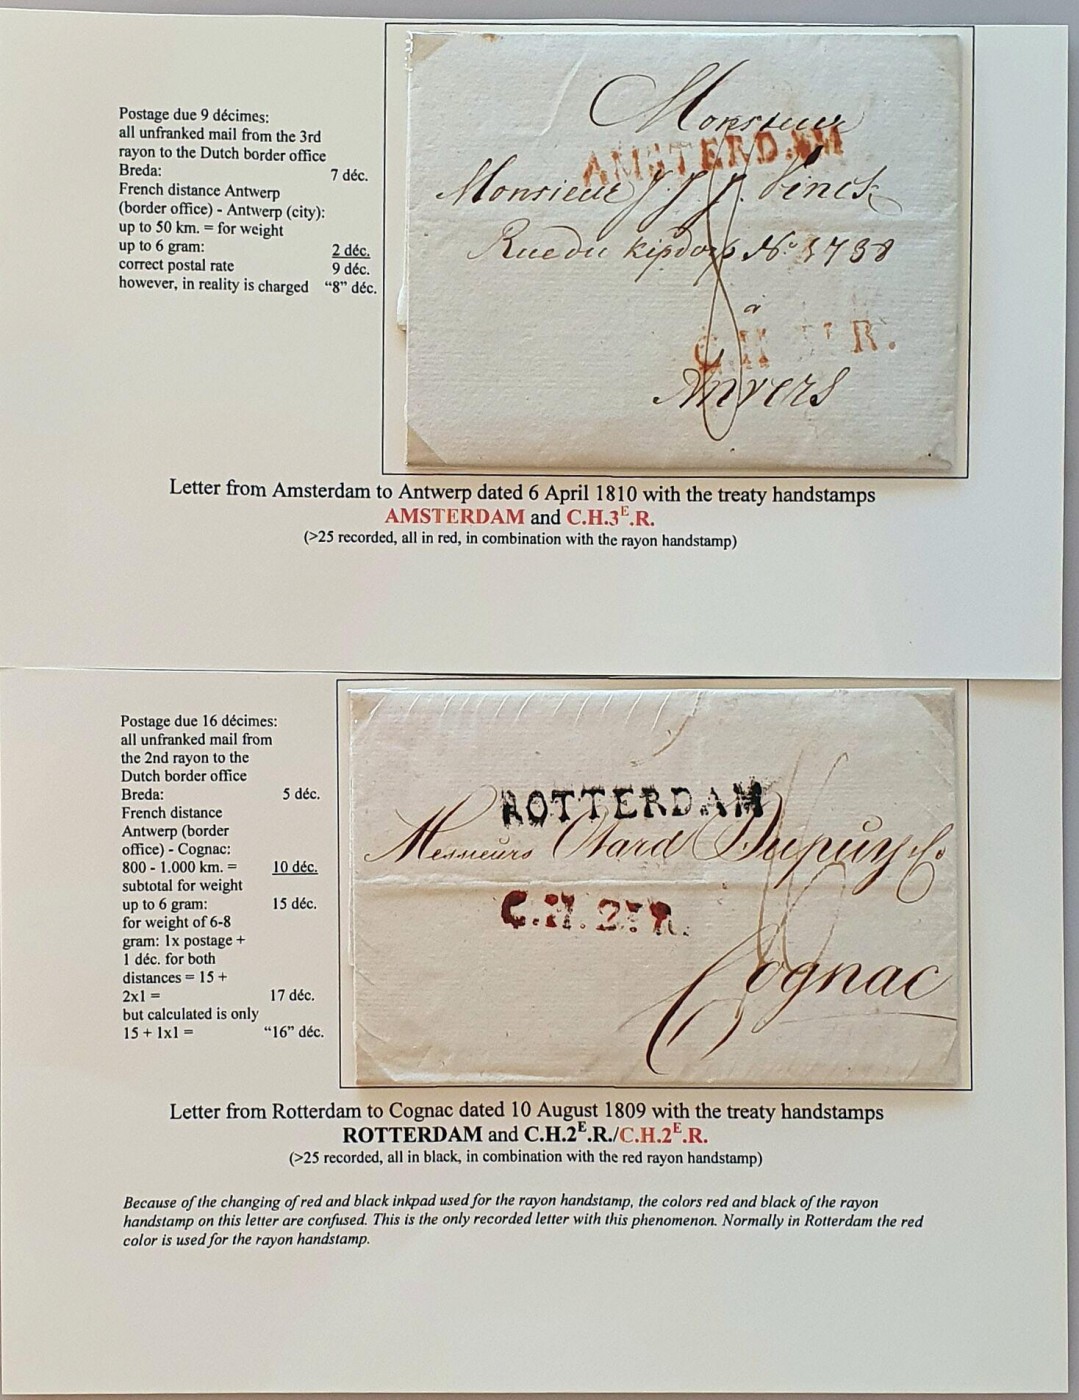 Postage due 9 décimes:
all unfranked mail from the 3rd
rayon to the Dutch border office
Breda: 7 déc.
French distance Antwerp
(border office) - Antwerp (city):
up to 50 km. = for weight
up to 6 gram: 2 déc.
correct postal rate 9 déc.
however, in reality is charged “8” déc.
Monsieur
AMSTERDAM
Monsieur J. J. J. Vinck
Rue du kipdorp No. 1738
8
a
C.H R.
Anvers
Letter from Amsterdam to Antwerp dated 6 April 1810 with the treaty handstamps
AMSTERDAM and C.H.3E.R.
(>25 recorded, all in red, in combination with the rayon handstamp)
Postage due 16 décimes:
all unfranked mail from
the 2nd rayon to the
Dutch border office
Breda: 5 déc.
French distance
Antwerp (border
office) - Cognac:
800 - 1.000 km. = 10 déc.
subtotal for weight
up to 6 gram: 15 déc.
for weight of 6-8
gram: 1x postage +
1 déc. for both
distances = 15 +
2x1 = 17 déc.
but calculated is only
15 + 1x1 = “16” déc.
ROTTERDAM
Messieurs Otard Dupuy & Co
16
C.H. 2E R.
Cognac
Letter from Rotterdam to Cognac dated 10 August 1809 with the treaty handstamps
ROTTERDAM and C.H.2E.R./C.H.2E.R.
(>25 recorded, all in black, in combination with the red rayon handstamp)
Because of the changing of red and black inkpad used for the rayon handstamp, the colors red and black of the rayon
handstamp on this letter are confused. This is the only recorded letter with this phenomenon. Normally in Rotterdam the red
color is used for the rayon handstamp.